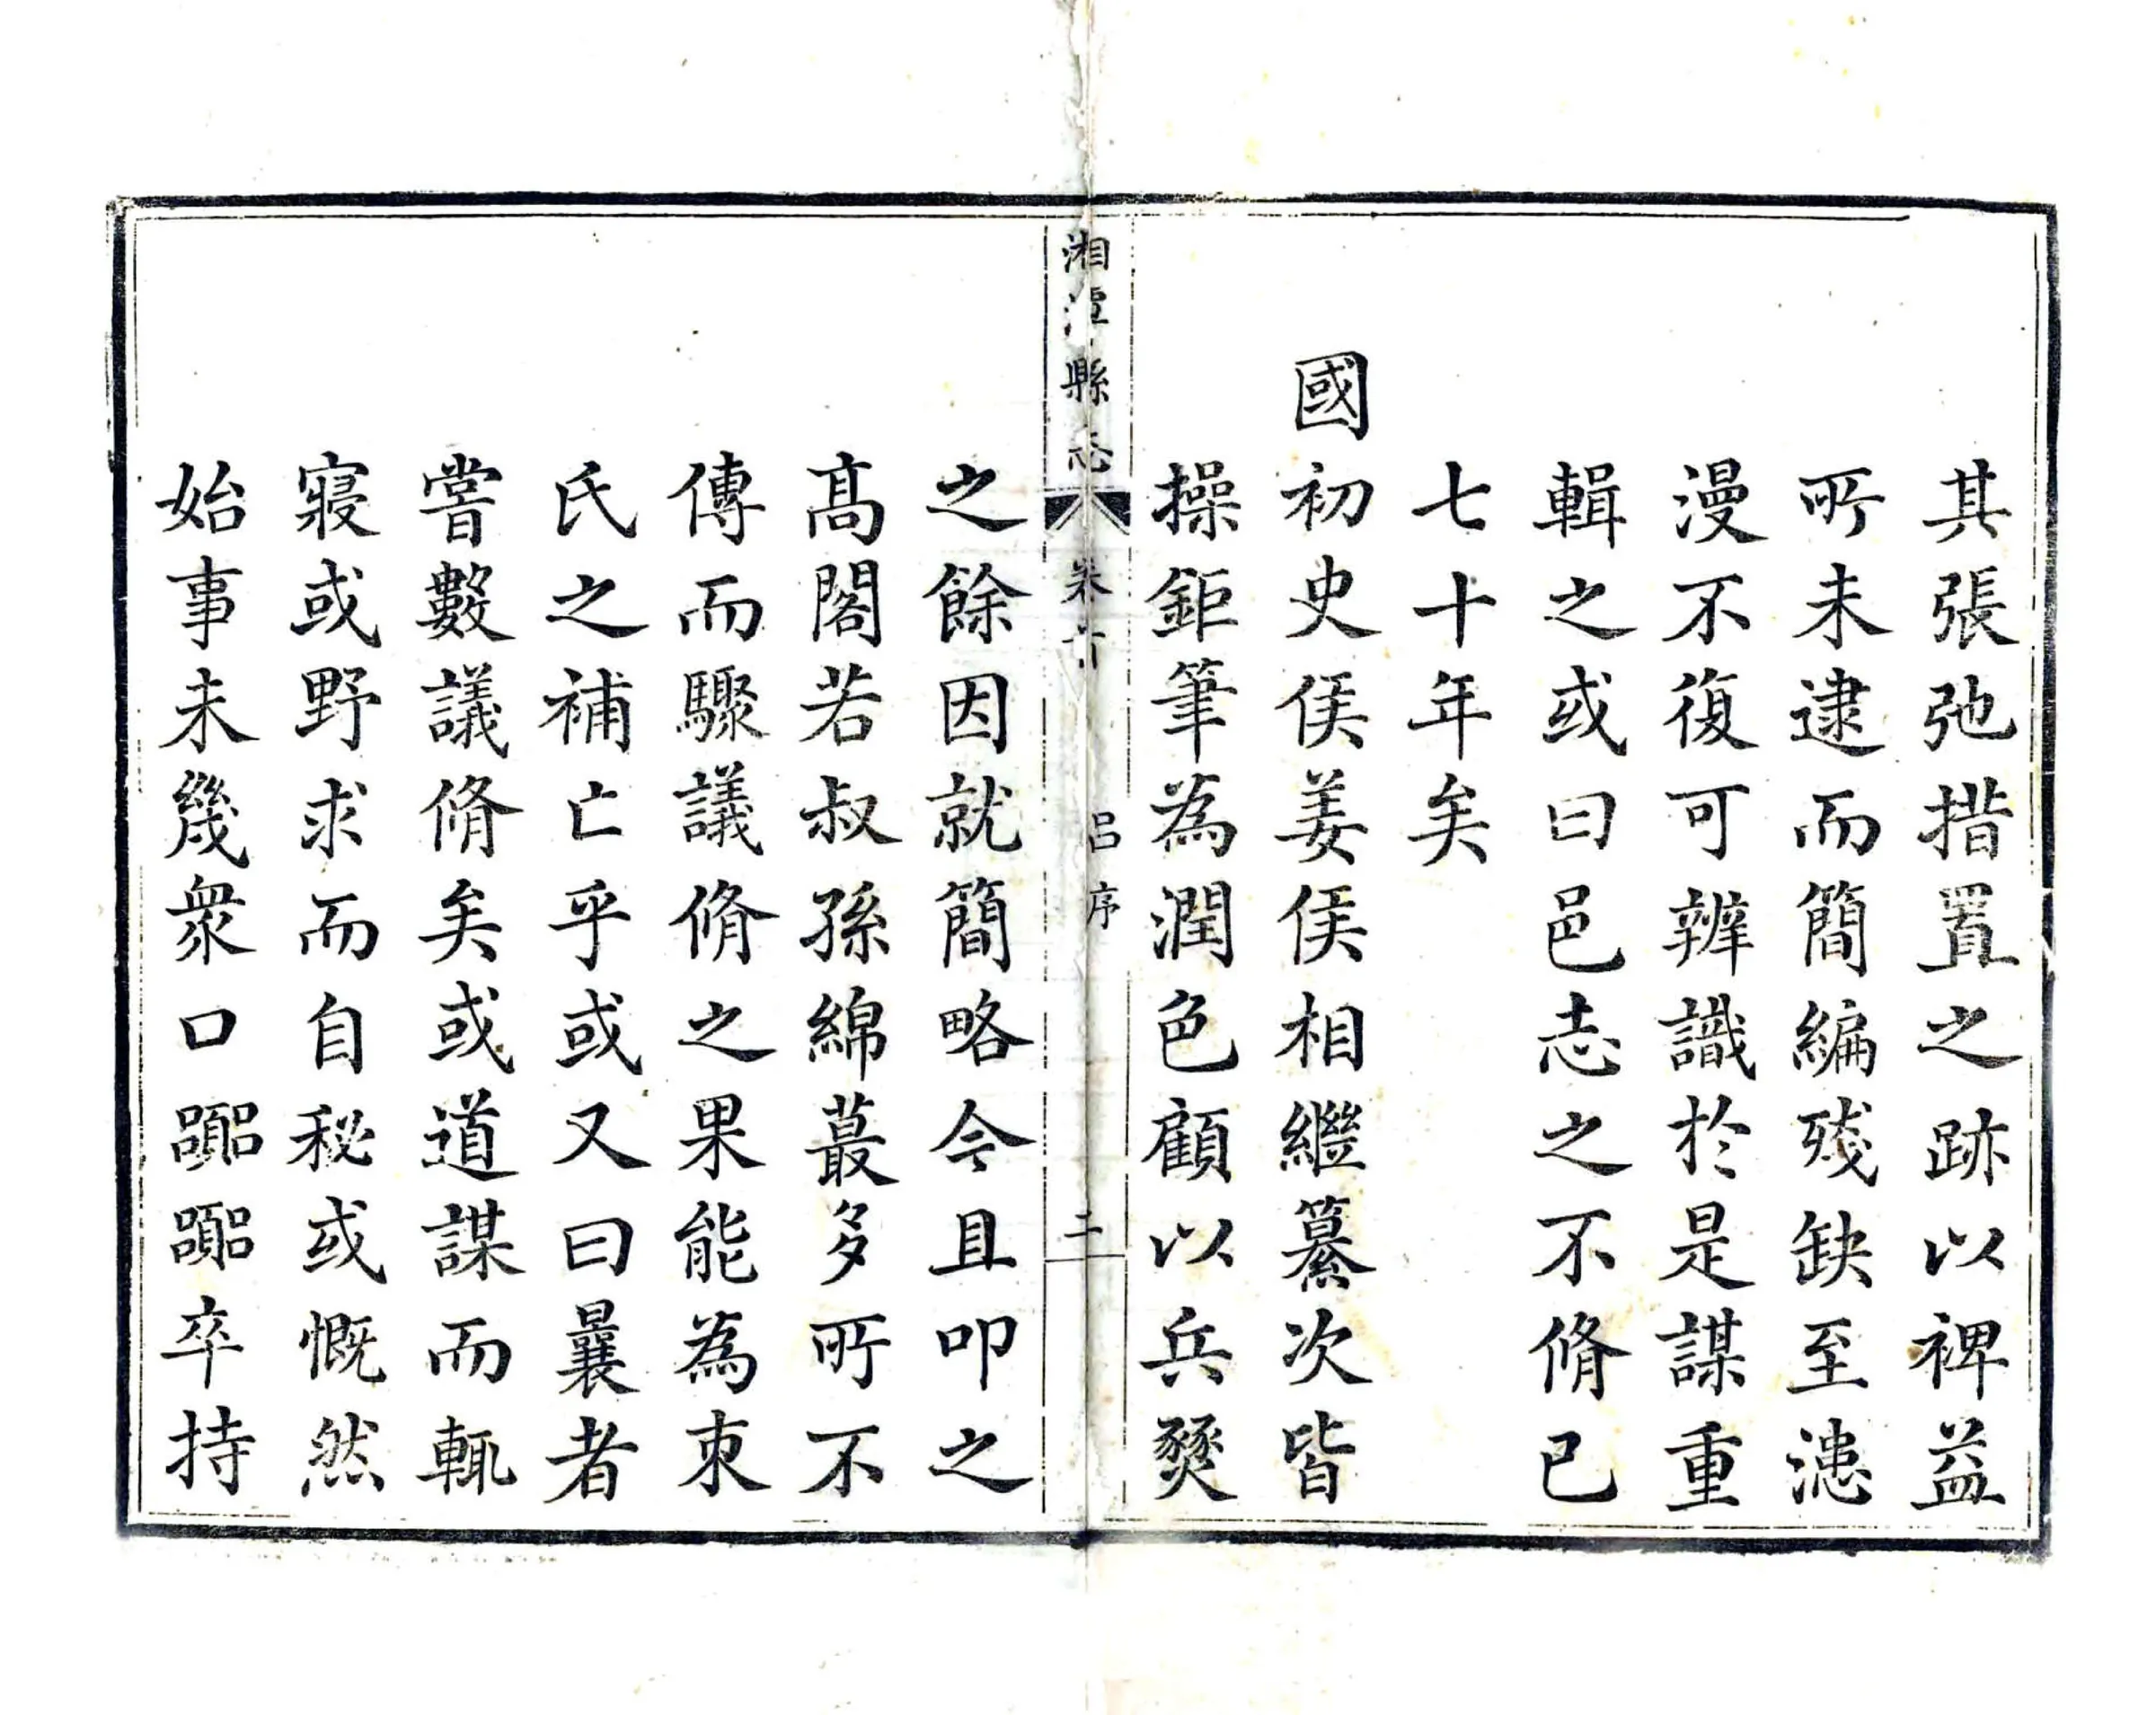 其張弛措置之跡以裨益
所未逮而簡編殘缺至漶
漫不復可辨識於是謀重
輯之或曰邑志之不脩已
七十年矣
國初史侯姜侯相繼纂次皆
操鉅筆為潤色顧以兵燹
湘潭縣志 卷首 呂序 二
之餘因就簡略今且叩之
髙閣若叔孫綿蕞多所不
傳而驟議脩之果能為束
氏之補亡乎或又曰曩者
嘗數議脩矣或道謀而輒
寢或野求而自秘或慨然
始事未幾衆口嚻嚻卒持